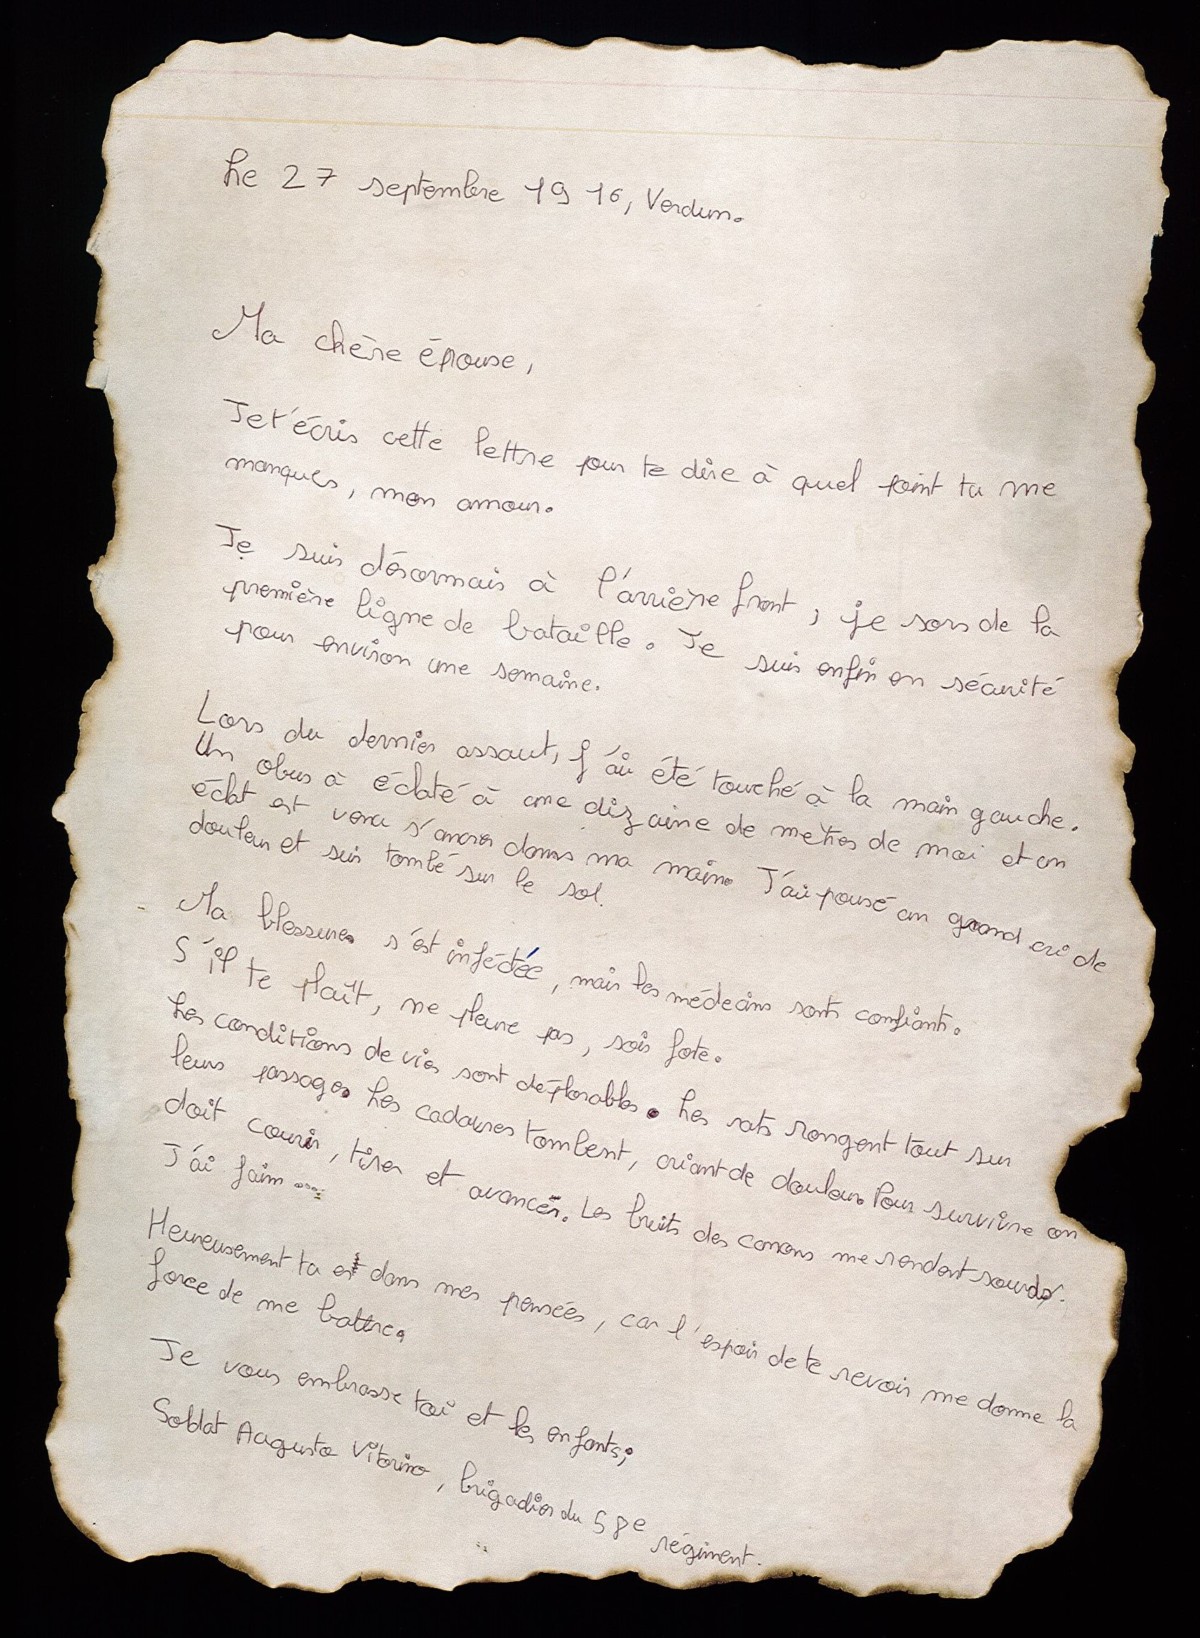 Le 27 septembre 1916, Verdun.
Ma chère épouse,
Je t'écris cette lettre pour te dire à quel point tu me
manques, mon amour.
Je suis désormais à l'arrière front, je sors de la
première ligne de bataille. Je suis enfin en sécurité
pour environ une semaine.
Lors du dernier assaut, j'ai été touché à la main gauche.
Un obus à éclaté à une dizaine de mètres de moi et un
éclat est venu s'ancrer dans ma main. J'ai poussé un grand cri de
douleur et suis tombé sur le sol.
Ma blessure s'est infectée, mais les médecins sont confiants.
S'il te plaît, ne pleure pas, sois forte.
Les conditions de vies sont déplorables. Les rats rongent tout sur
leurs passage. Les cadavres tombent, criant de douleur. Pour survivre on
doit courir, tirer et avancer. Les bruits des canons me rendent sourds.
J'ai faim ....
Heureusement tu es dans mes pensées, car l'espoir de te revoir me donne la
force de me battre.
Je vous embrasse toi et les enfants,
Soldat Augusto Vitorino, brigadier du 58e régiment.